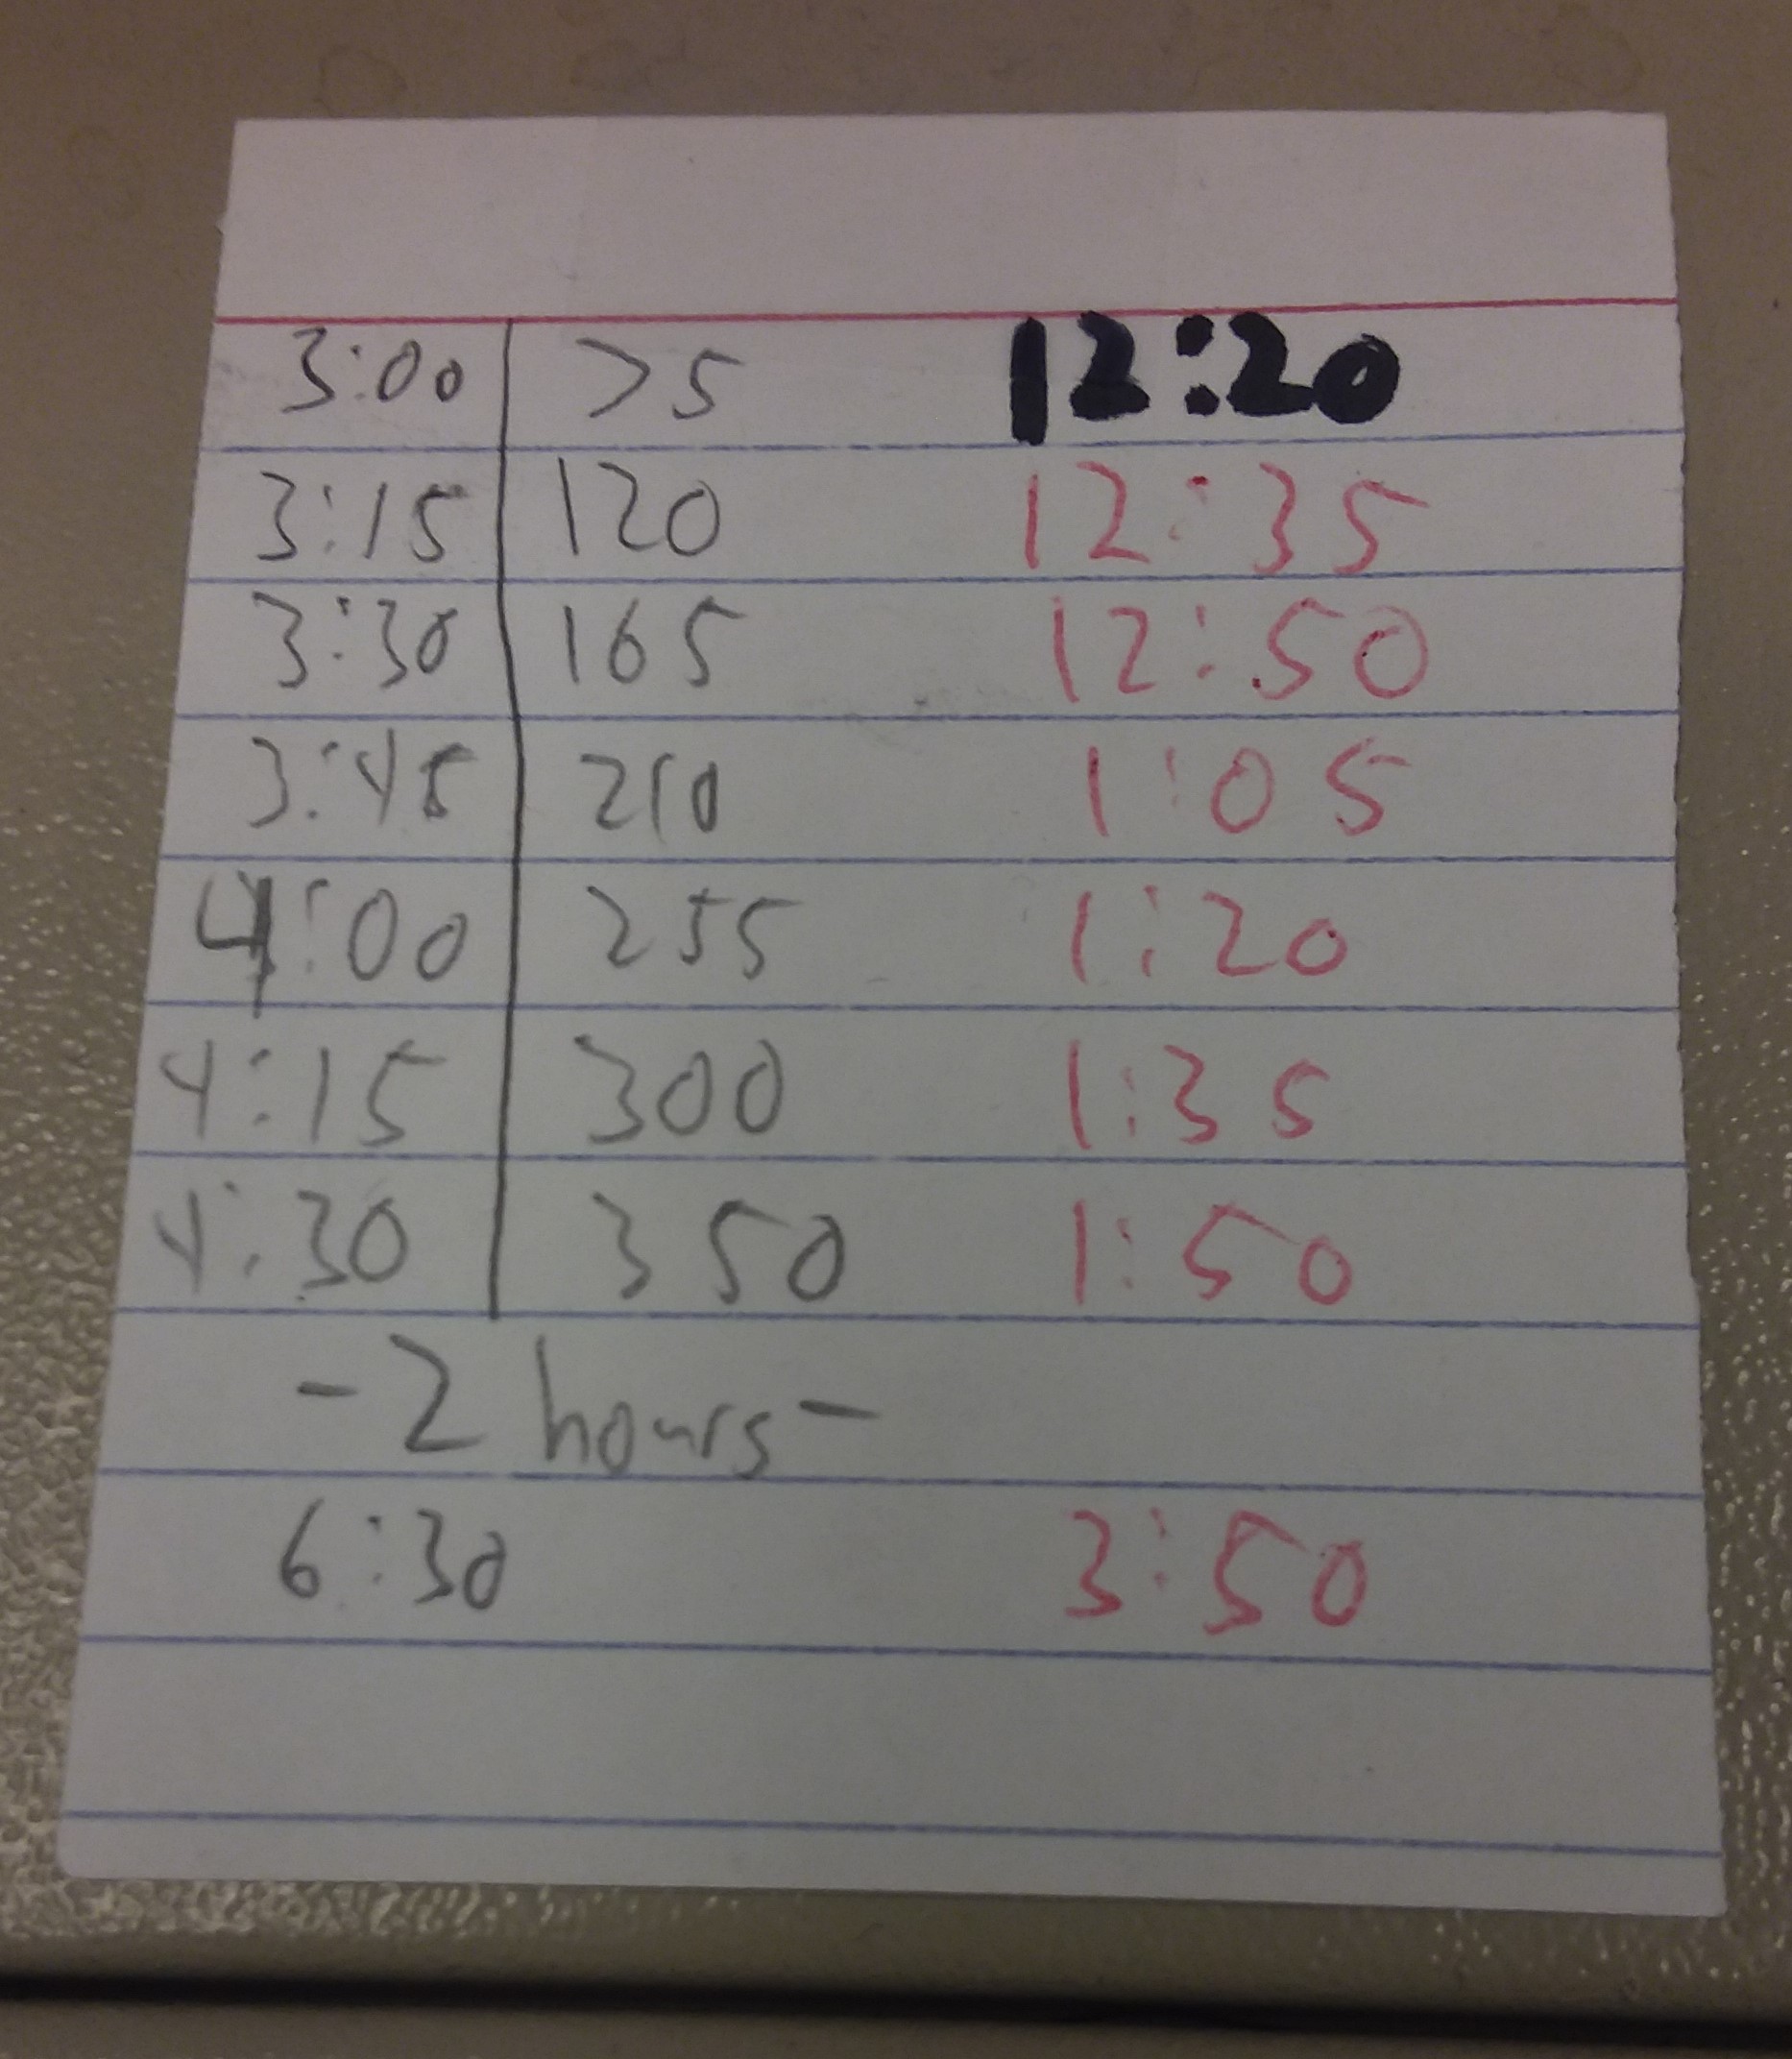 3:00 >5 12:20
3:15 120 12:35
3:30 165 12:50
3:45 210 1:05
4:00 255 1:20
4:15 300 1:35
4:30 350 1:50
- 2 hours -
6:30 3:50